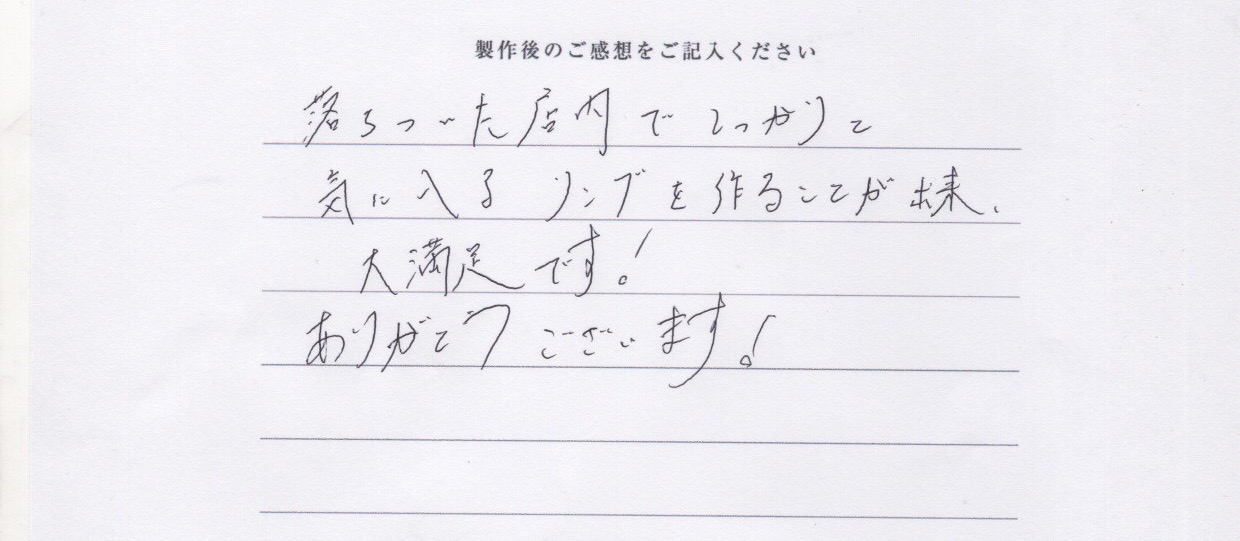 製作後のご感想をご記入ください
落ちついた店内でしっかりと
気に入るリングを作ることが出来、
大満足です!
ありがとうございます!